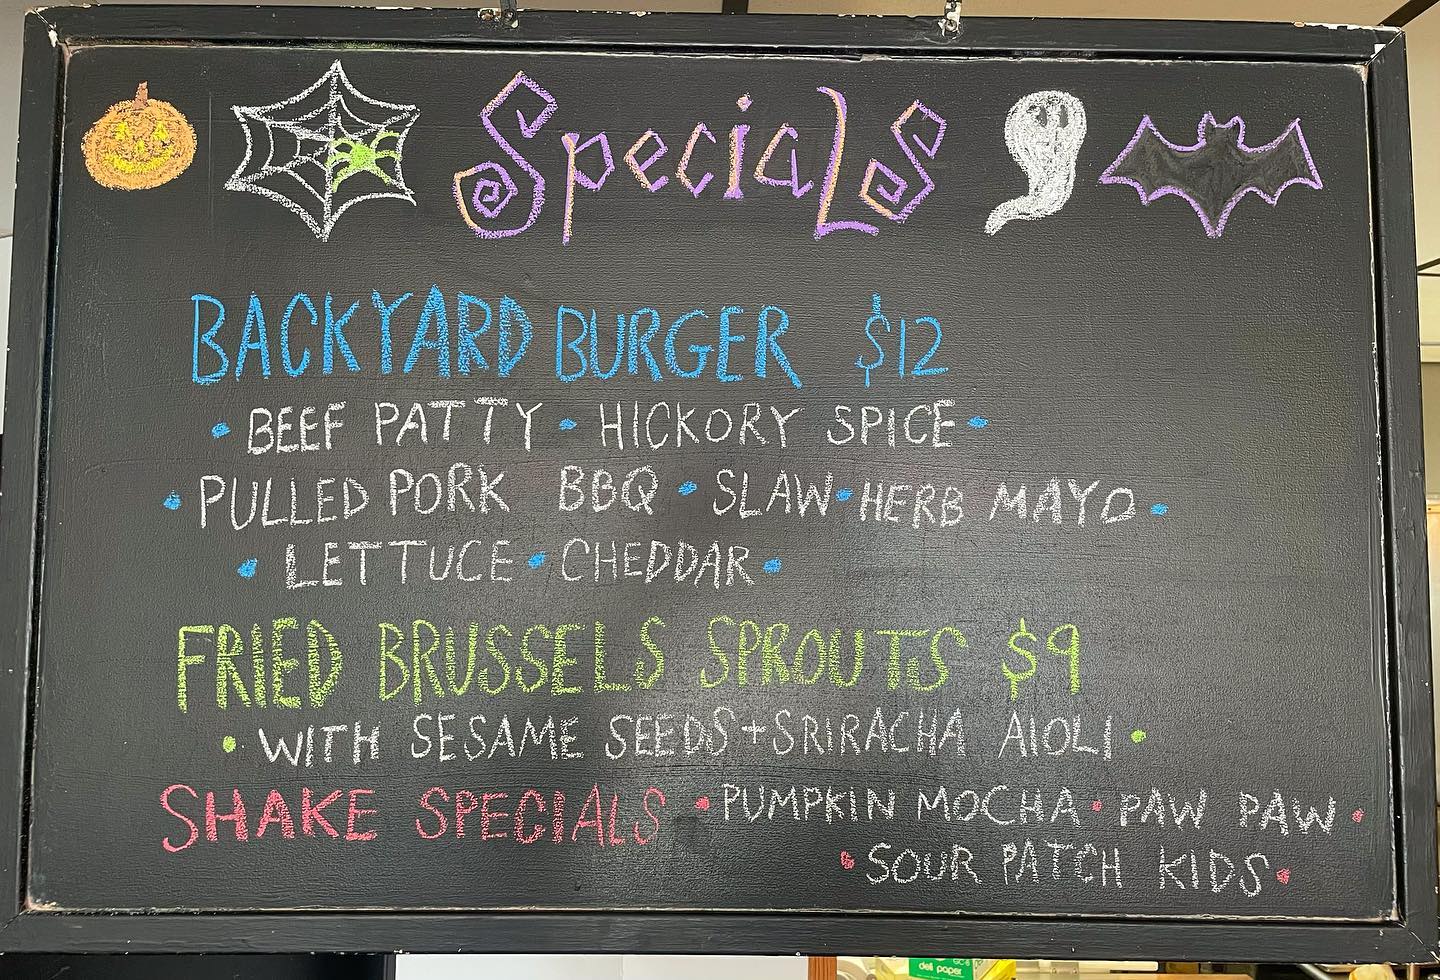 SpeciaLs
BACKYARD BURGER $12
• BEEF PATTY • HICKORY SPICE •
• PULLED PORK BBQ • SLAW • HERB MAYO •
• LETTUCE • CHEDDAR •
FRIED BRUSSELS SPROUTS $9
• WITH SESAME SEEDS + SRIRACHA AIOLI •
SHAKE SPECIALS • PUMPKIN MOCHA • PAW PAW •
• SOUR PATCH KIDS •
deli paper